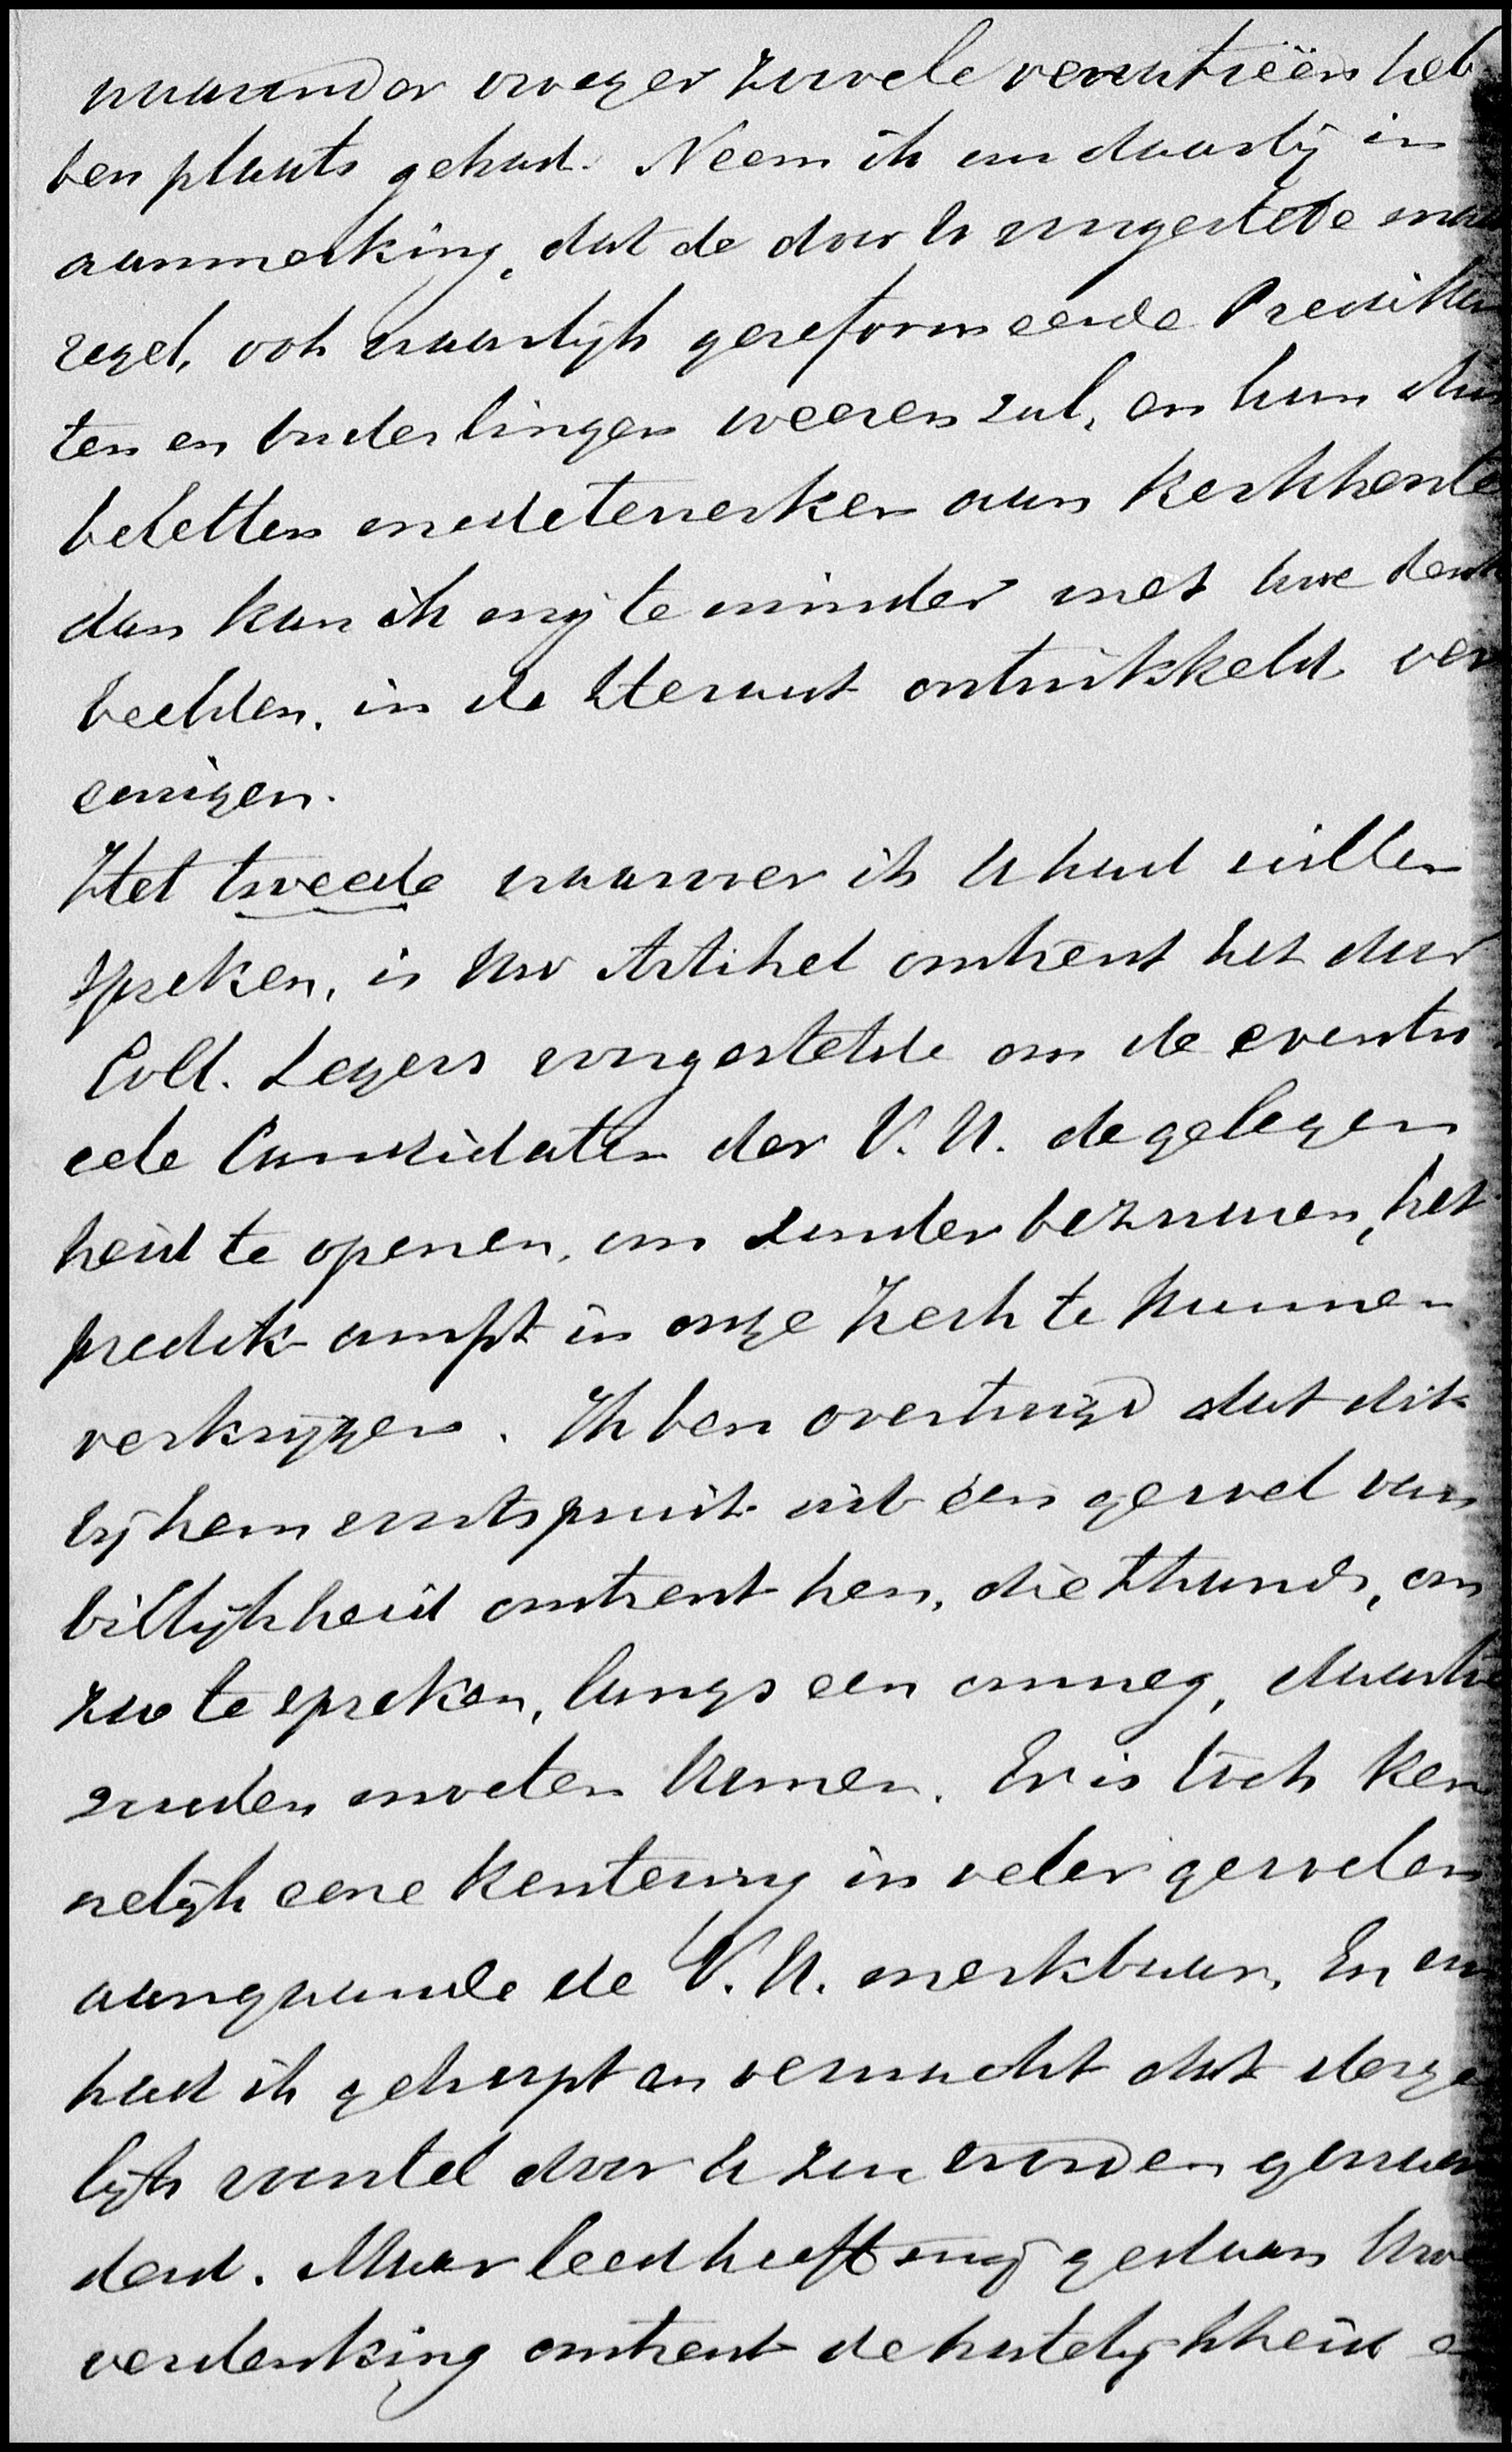 waaronder vroeger zoovele vexatieën heb
ben plaats gehad. Neem ik nu daarbij in
aanmerking, dat de door U voorgestelde maat
regel, ook waarlijk gereformeerde Predikan
ten en Ouderlingen weeren zal, en hun dus
beletten medetewerken aan kerkherstel
dan kan ik mij te minder met Uwe denk
beelden, in de Heraut ontwikkeld ver
eenigen.
Het tweede waarover ik U had willen
spreken, is Uw Artikel omtrent het door
Coll. Segers voorgestelde om de eventu
eele Candidaten der V. U. de gelegen
heid te openen, om zonder bezwaren, het
predik-ampt in onze Kerk te kunnen
verkrijgen. Ik ben overtuigd dat dit
bij hem ontspruit uit een gevoel van
billijkheid omtrent hen, die thands, om
zoo te spreken, langs een omweg, daartoe
zouden moeten komen. Er is toch ken
nelijk eene kentering in veler gevoelen
aangaande de V. U. merkbaar. En nu
had ik gehoopt en verwacht dat derge
lijk voorstel door U zou worden gewaar
deerd. Maar leed heeft mij gedaan Uwe
verdenking omtrent de hartelijkheid